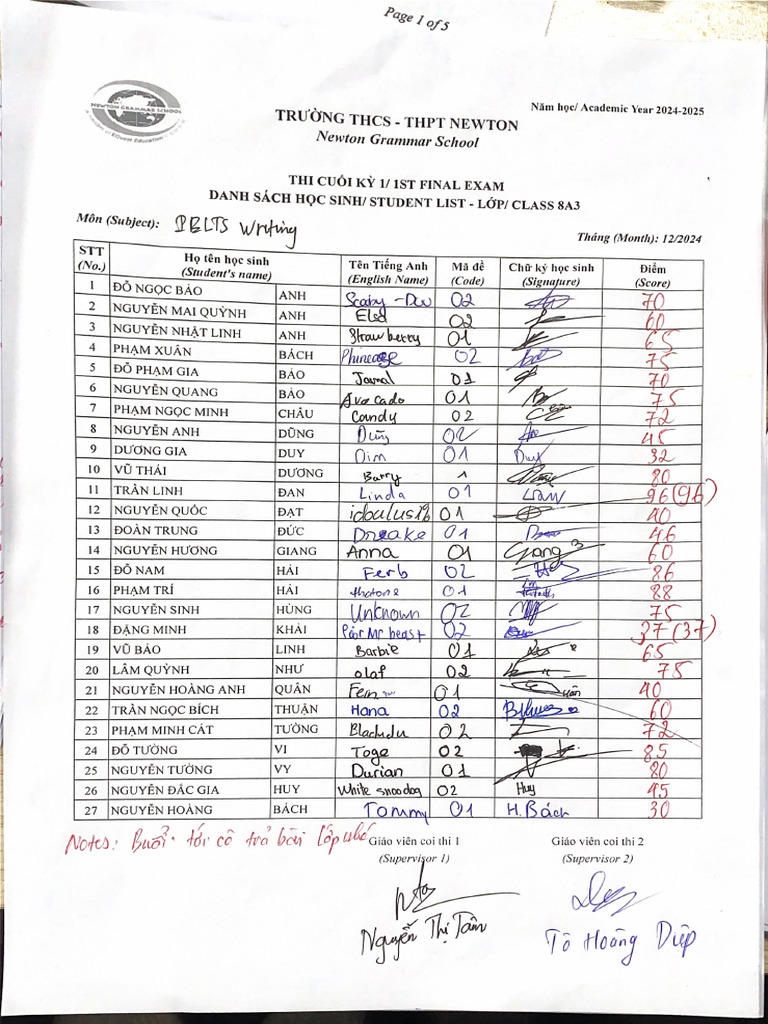 Page 1 of 5
NEWTON GRAMMAR SCHOOL
Năm học/ Academic Year 2024-2025
TRƯỜNG THCS - THPT NEWTON
Newton Grammar School
THI CUỐI KỲ 1/ 1ST FINAL EXAM
DANH SÁCH HỌC SINH/ STUDENT LIST - LỚP/ CLASS 8A3
Môn (Subject): IELTS Writing
Tháng (Month): 12/2024
STT (No.) Họ tên học sinh (Student's name) Tên Tiếng Anh (English Name) Mã đề (Code) Chữ ký học sinh (Signature) Điểm (Score)
1 ĐỖ NGỌC BẢO ANH 02 70
2 NGUYỄN MAI QUỲNH ANH 02 60
3 NGUYỄN NHẬT LINH ANH Strawberry 01 65
4 PHẠM XUÂN BÁCH 02 75
5 ĐỖ PHẠM GIA BẢO Jamal 01 70
6 NGUYỄN QUANG BẢO Avocado 01 75
7 PHẠM NGỌC MINH CHÂU Candy 02 72
8 NGUYỄN ANH DŨNG Dũng 02 45
9 DƯƠNG GIA DUY Dim 01 Duy 32
10 VŨ THÁI DƯƠNG Barry 1 80
11 TRẦN LINH ĐAN Linda 01 96 (96)
12 NGUYỄN QUỐC ĐẠT 01 40
13 ĐOÀN TRUNG ĐỨC Dreake 01 46
14 NGUYỄN HƯƠNG GIANG Anna 01 Giang 60
15 ĐỖ NAM HẢI Ferb 02 86
16 PHẠM TRÍ HẢI 01 88
17 NGUYỄN SINH HÙNG Unknown 02 75
18 ĐẶNG MINH KHẢI Mr beast 02 37 (37)
19 VŨ BẢO LINH Barbie 01 65
20 LÂM QUỲNH NHƯ olaf 02 78
21 NGUYỄN HOÀNG ANH QUÂN 01 40
22 TRẦN NGỌC BÍCH THUẬN Hana 02 60
23 PHẠM MINH CÁT TƯỜNG 02 72
24 ĐỖ TƯỜNG VI Toge 02 85
25 NGUYỄN TƯỜNG VY Durian 01 80
26 NGUYỄN ĐẮC GIA HUY White snoodog 02 Huy 45
27 NGUYỄN HOÀNG BÁCH Tommy 01 H.Bách 30
Notes: Buổi tối cô trả bài lớp nhé
Giáo viên coi thi 1 Giáo viên coi thi 2
(Supervisor 1) (Supervisor 2)
Nguyễn Thị Tâm Tô Hoàng Diệp